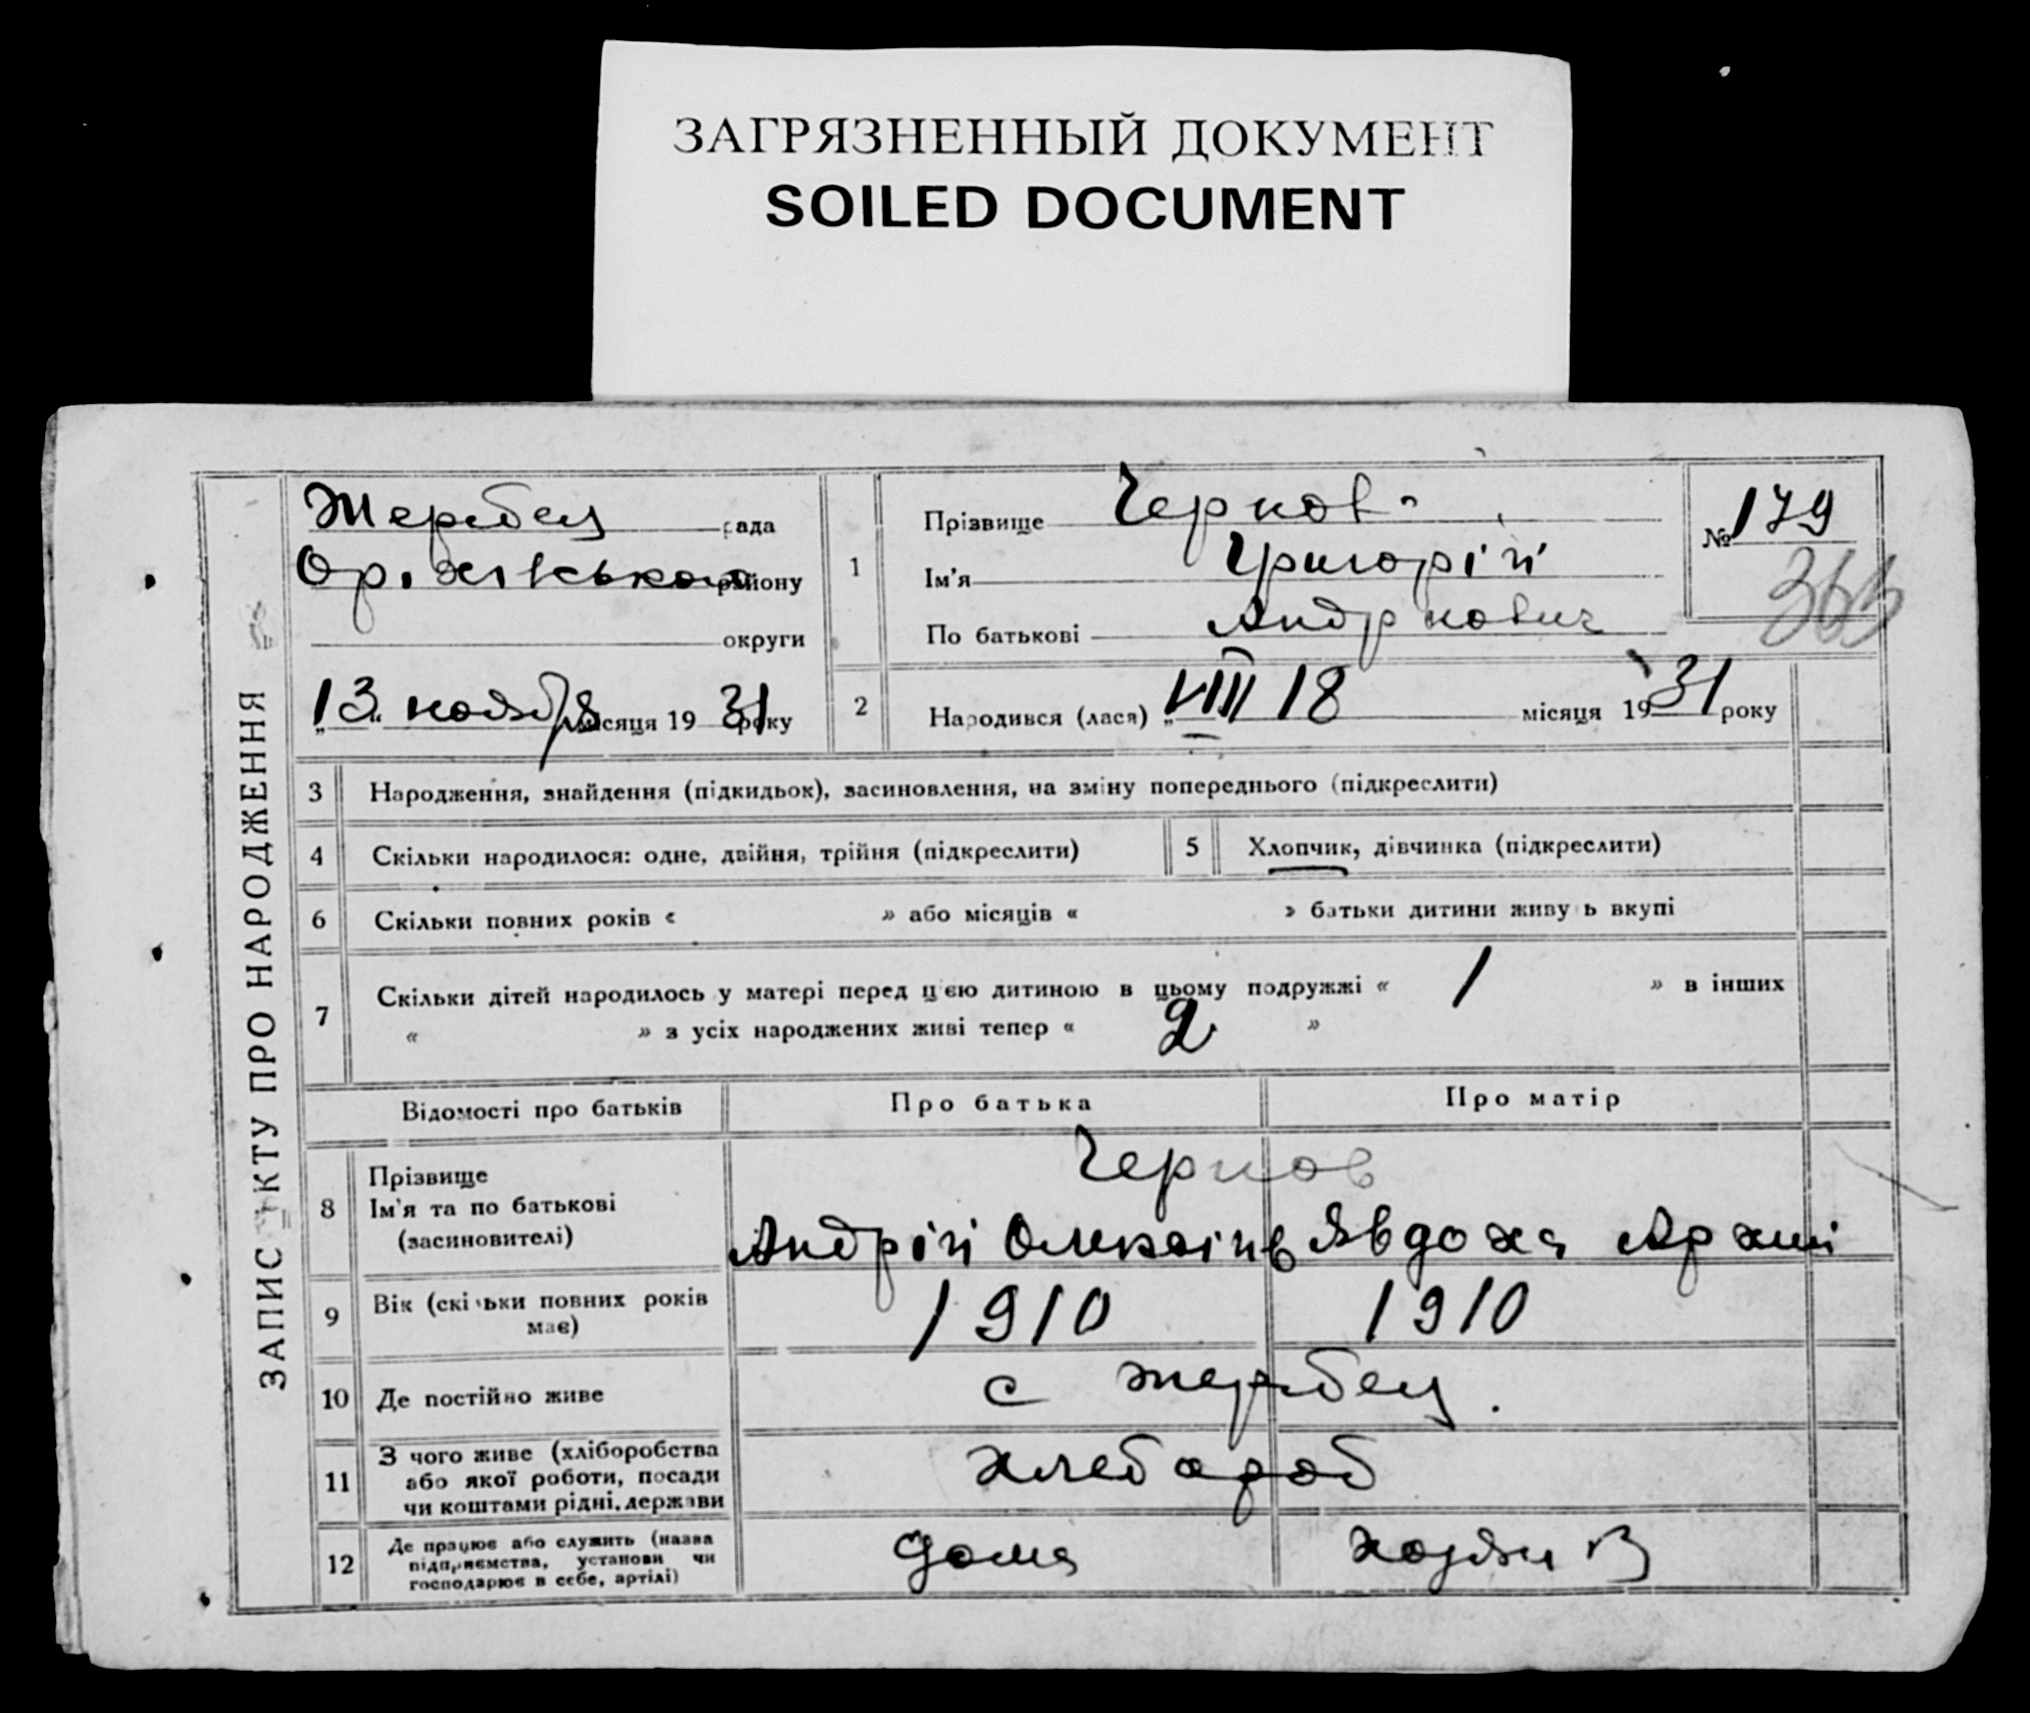 ЗАГРЯЗНЕННЫЙ ДОКУМЕНТ
SOILED DOCUMENT
ЗАПИС АКТУ ПРО НАРОДЖЕННЯ
Жеребец рада
Оріхівського району
округи
„13“ ноября місяця 1931 року
1
Прізвище Чернов
Ім'я Григорій
По батькові Андрієвич
№ 179
2 Народився (лася) „VIII 18 місяця 1931 року
3 Народження, знайдення (підкидьок), засиновлення, на зміну попереднього (підкреслити)
4 Скільки народилося: одне, двійня, трійня (підкреслити)
5 Хлопчик, дівчинка (підкреслити)
6 Скільки повних років « » або місяців « » батьки дитини живуть вкупі
7 Скільки дітей народилось у матері перед цією дитиною в цьому подружжі « 1 » в інших
« » з усіх народжених живі тепер « 2 »
Відомості про батьків Про батька Про матір
8 Прізвище
Ім'я та по батькові
(засиновителі)
Чернов
Андрій Явдоха
9 Вік (скільки повних років
має)
1910 1910
10 Де постійно живе с жеребец.
11 З чого живе (хліборобства
або якої роботи, посади
чи коштами рідні, держави
хлебороб
12 Де працює або служить (назва
підприємства, установи чи
господарює в себе, артілі)
дома